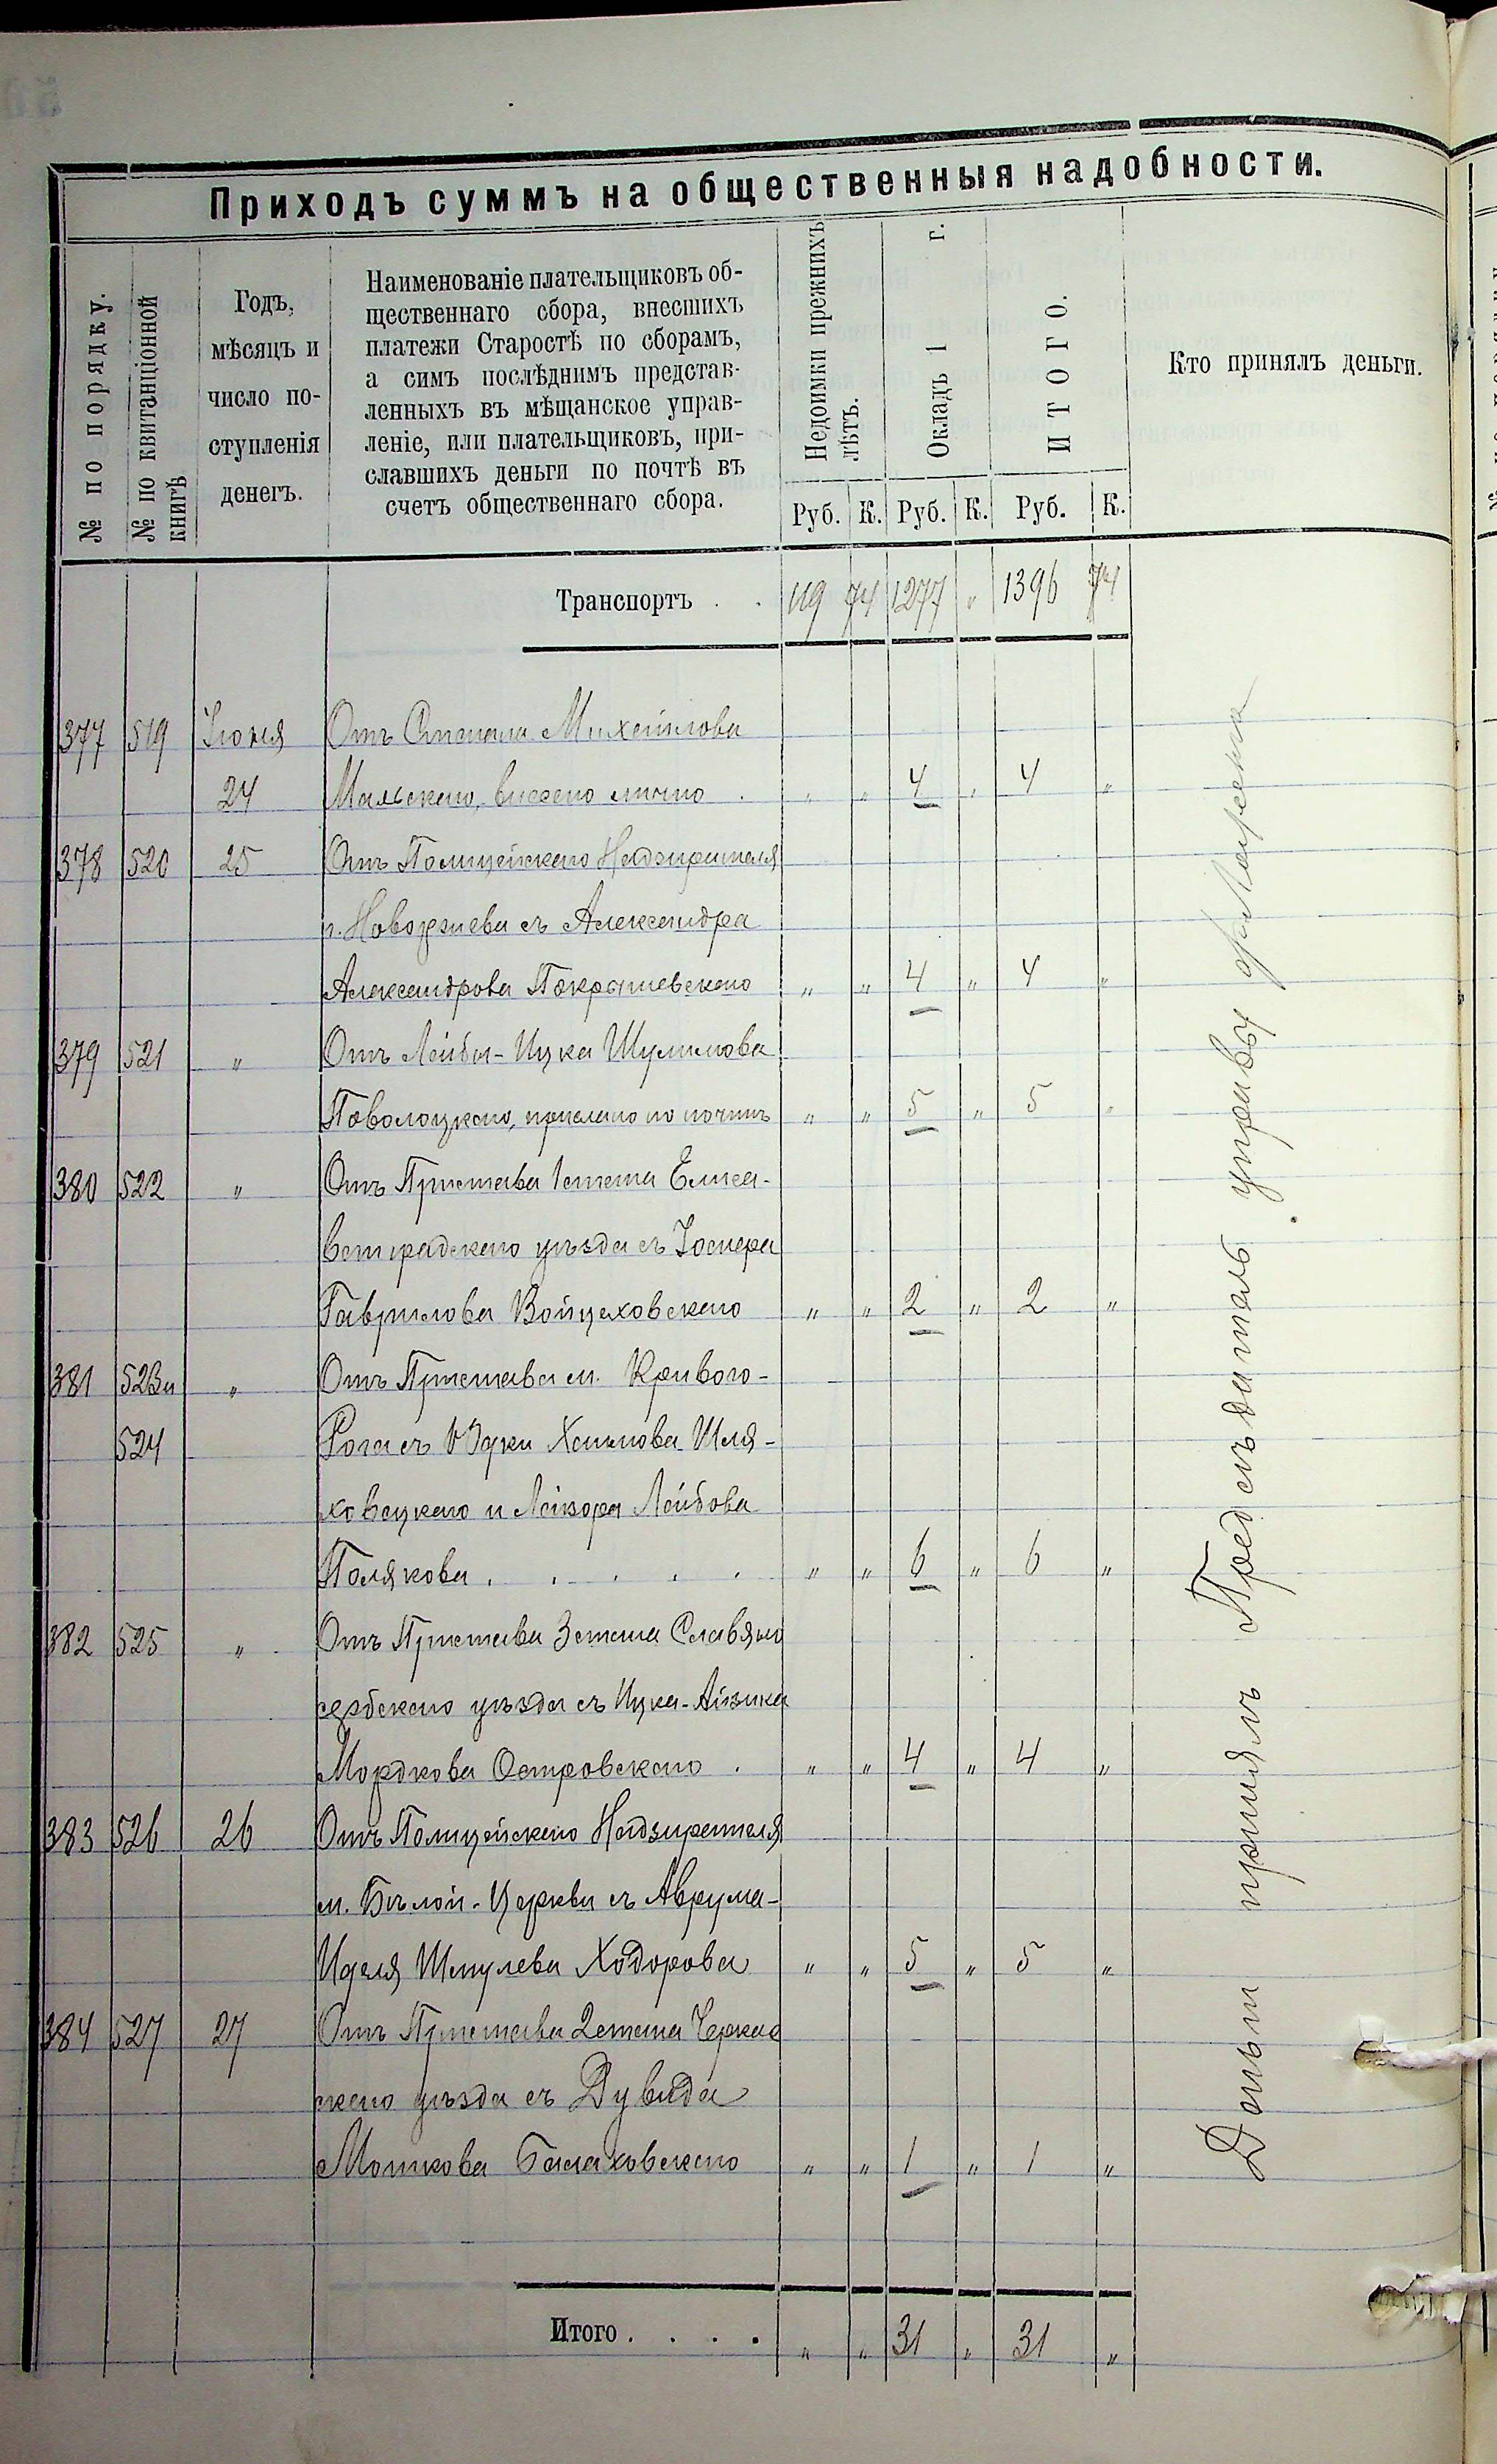 Приходъ суммъ на общественныя надобности.
№ по порядку.
№ по квитанціонной книгѣ
Годъ,
мѣсяцъ и
число по-
ступленія
денегъ.
Наименованіе плательщиковъ об-
щественнаго сбора, внесшихъ
платежи Старостѣ по сборамъ,
а симъ послѣднимъ представ-
ленныхъ въ мѣщанское управ-
леніе, или плательщиковъ, при-
славшихъ деньги по почтѣ въ
счетъ общественнаго сбора.
Недоимки прежнихъ лѣтъ.
Окладъ 1 г.
ИТОГО.
Кто принялъ деньги.
Руб. К. Руб. К. Руб. К.
Транспортъ . . 119 74 1277 " 1396 74
377 519 Іюня Отъ Степана Михайлова
24 Мальскаго, внесено лично . " " 4 " 4 "
378 520 25 Отъ Полицейскаго Надзирателя
Александра
Александрова Покрашевскаго " " 4 " 4 "
379 521 " Отъ Лейбы-Ицка Шулимова
Поволоцкаго, прислано по почтѣ " " 5 " 5 "
380 522 " Отъ Пристава 1 стана Елиса-
ветградскаго уѣзда съ
Гаврилова Войцеховскаго " " 2 " 2 "
381 523 и " Отъ Пристава м. Кривого-
524 Рога съ Хаимова Шля-
ховецкаго и Лейзора Лейбова
Полякова . . . . . " " 6 " 6 "
382 525 " Отъ Пристава 3 стана Славяно
сербскаго уѣзда съ Ицка-Айзика
Мордкова Островскаго . " " 4 " 4 "
383 526 26 Отъ Полицейскаго Надзирателя
м. Бѣлой-Церкви съ Аврума-
Иделя Шмулева Ходорова " " 5 " 5 "
384 527 27 Отъ Пристава 2 стана Черкас
скаго уѣзда съ Дувида
Мошкова Балаховскаго " " 1 " 1 "
Итого . . . . " " 31 " 31 "
Деньги принялъ Предсѣдатель управы